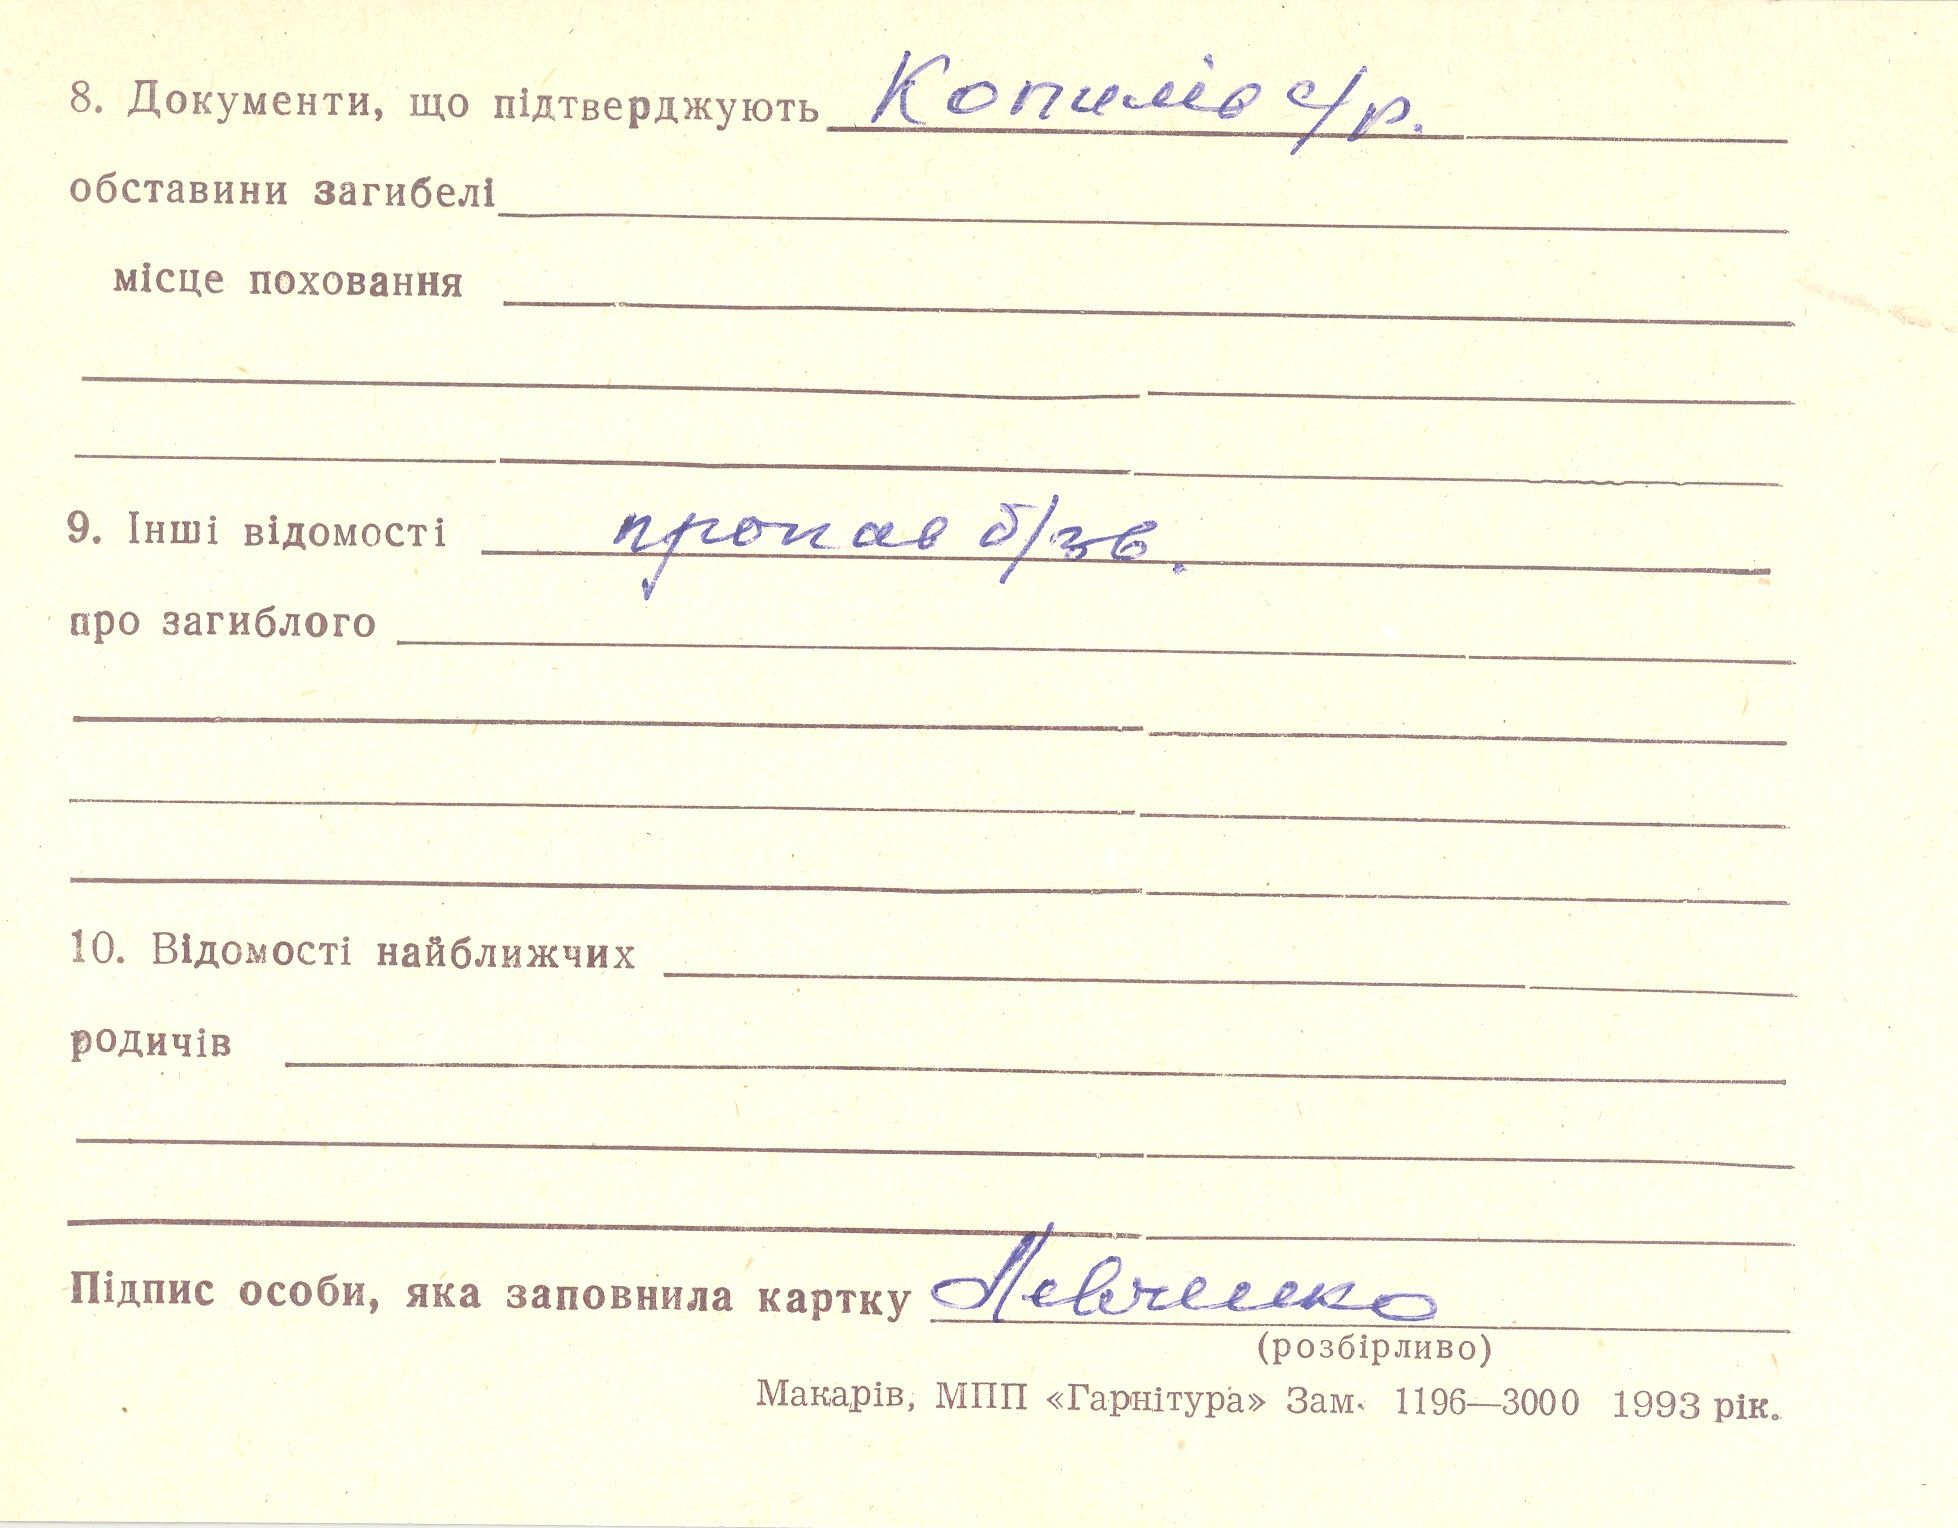 8. Документи, що підтверджують Копилів с/р.
обставини загибелі
місце поховання
9. Інші відомості пропав б/зв.
про загиблого
10. Відомості найближчих
родичів
Підпис особи, яка заповнила картку Левченко
(розбірливо)
Макарів, МПП «Гарнітура» Зам. 1196—3000 1993 рік.